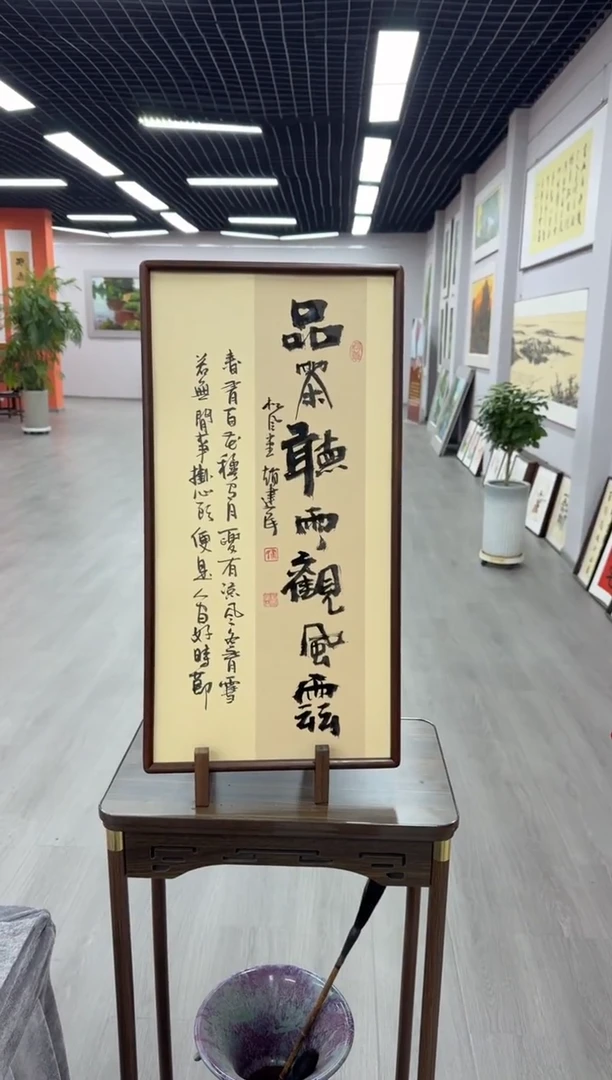 品茶聽雨觀風雲
松风堂 趙建民
春有百花秋有月 夏有涼风冬有雪
若無閒事掛心頭 便是人间好時節